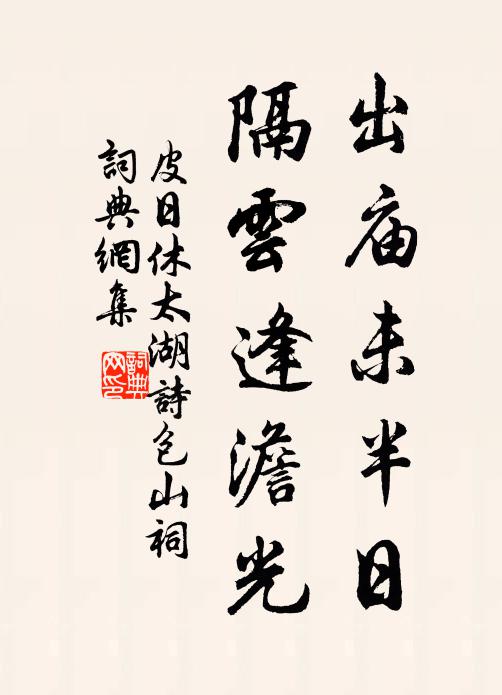 出庙未半日
隔雲逢澹光
皮日休太湖詩包山祠
詞典網集
詞典網印